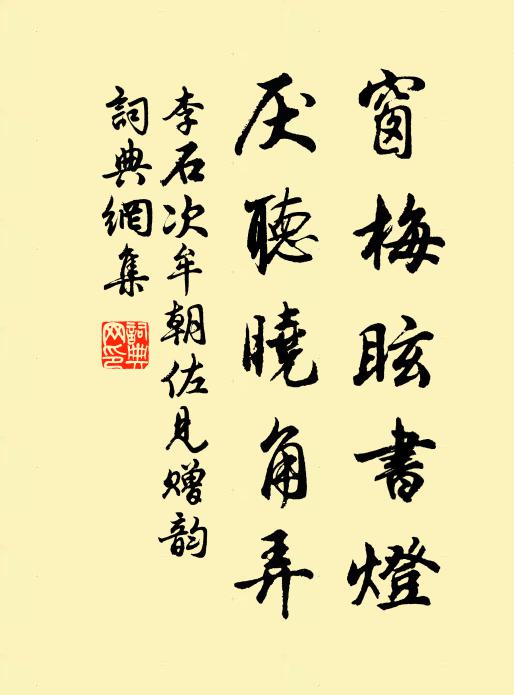 窗梅眩書燈
厌聽曉角弄
李石次牟朝佐見贈韵
詞典網集
詞典网印